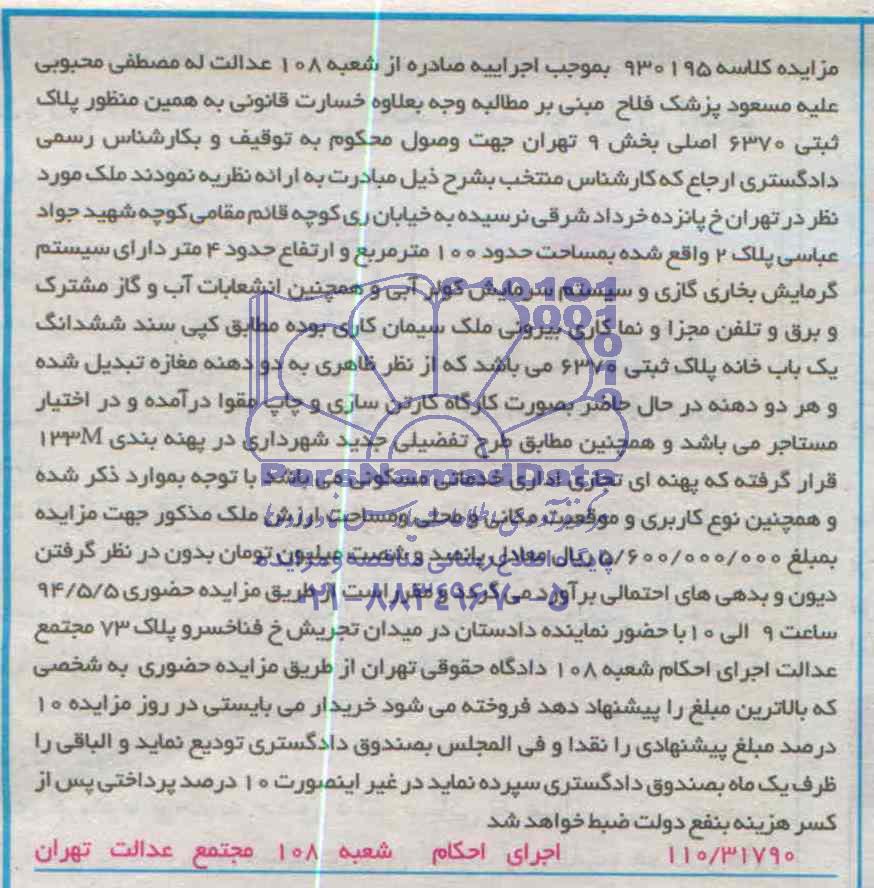 مزایده کلاسه ۹۳۰۱۹۵ بموجب اجراییه صادره از شعبه ۱۰۸ عدالت له مصطفی محبوبی
علیه مسعود پزشک فلاح مبنی بر مطالبه وجه بعلاوه خسارت قانونی به همین منظور پلاک
ثبتی ۶۳۷۰ اصلی بخش ۹ تهران جهت وصول محکوم به توقیف و بکارشناس رسمی
دادگستری ارجاع که کارشناس منتخب بشرح ذیل مبادرت به ارائه نظریه نمودند ملک مورد
نظر در تهران خ پانزده خرداد شرقی نرسیده به خیابان ری کوچه قائم مقامی کوچه شهید جواد
عباسی پلاک ۲ واقع شده بمساحت حدود ۱۰۰ مترمربع و ارتفاع حدود ۴ متر دارای سیستم
گرمایش بخاری گازی و سیستم سرمایش کولر آبی و همچنین انشعابات آب و گاز مشترک
و برق و تلفن مجزا و نما کاری بیرونی ملک سیمان کاری بوده مطابق کپی سند ششدانگ
یک باب خانه پلاک ثبتی ۶۳۷۰ می باشد که از نظر ظاهری به دو دهنه مغازه تبدیل شده
و هر دو دهنه در حال حاضر بصورت کارگاه کارتن سازی و چاپ مقوا درآمده و در اختیار
مستاجر می باشد و همچنین مطابق طرح تفضیلی جدید شهرداری در پهنه بندی ۱۳۳M
قرار گرفته که پهنه ای تجاری اداری خدماتی مسکونی می باشد با توجه بموارد ذکر شده
ParsNamadData
و همچنین نوع کاربری و موقعیت مکانی و محلی ومساحت ارزش ملک مذکور جهت مزایده
بمبلغ ۵/۶۰۰/۰۰۰/۰۰۰ ریال معادل پانصد و شصت میلیون تومان بدون در نظر گرفتن
پایگاه اطلاع رسانی مناقصه و مزایده
دیون و بدهی های احتمالی برآورد می گردد و مقرر است از طریق مزایده حضوری ۹۴/۵/۵
۰۲۱-۸۸۳۴۹۶۷۰-۵
ساعت ۹ الی ۱۰ با حضور نماینده دادستان در میدان تجریش خ فناخسرو پلاک ۷۳ مجتمع
عدالت اجرای احکام شعبه ۱۰۸ دادگاه حقوقی تهران از طریق مزایده حضوری به شخصی
که بالاترین مبلغ را پیشنهاد دهد فروخته می شود خریدار می بایستی در روز مزایده ۱۰
درصد مبلغ پیشنهادی را نقدا و فی المجلس بصندوق دادگستری تودیع نماید و الباقی را
ظرف یک ماه بصندوق دادگستری سپرده نماید در غیر اینصورت ۱۰ درصد پرداختی پس از
کسر هزینه بنفع دولت ضبط خواهد شد
۱۱۰/۳۱۷۹۰ اجرای احکام شعبه ۱۰۸ مجتمع عدالت تهران